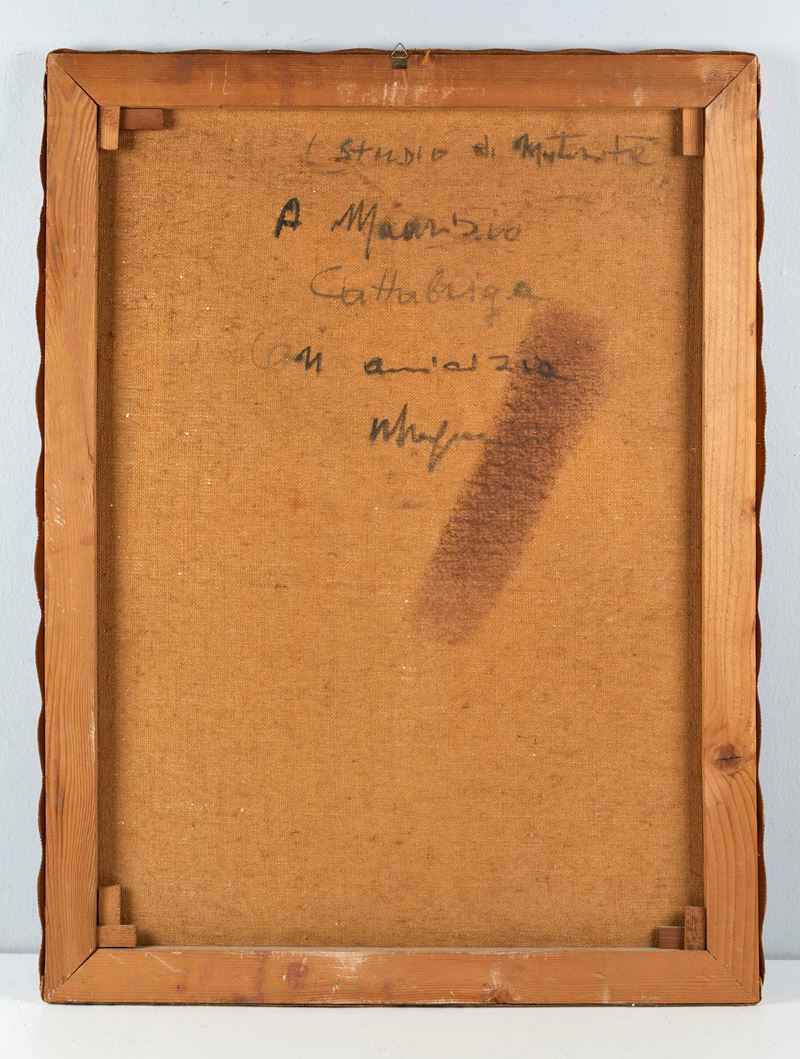 (STUDIO di Maternità
A Maurizio
Cattabriga
Con amicizia